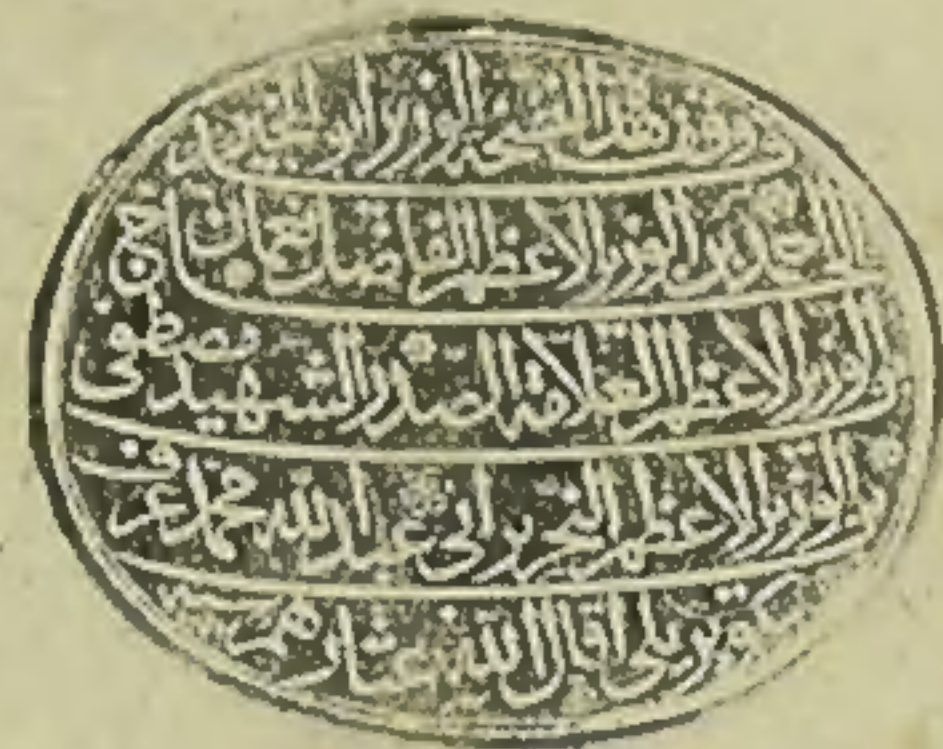 وقف هذه النسخة الوزير ابو الخيرات
الحاج احمد بن الوزير الاعظم الفاضل نعمان بن
الوزير الاعظم العلامة الصدر الشهيد مصطفى
بن الوزير الاعظم النحرير ابي عبد الله محمد عرف
بكوپريلي اقال الله عثارهم